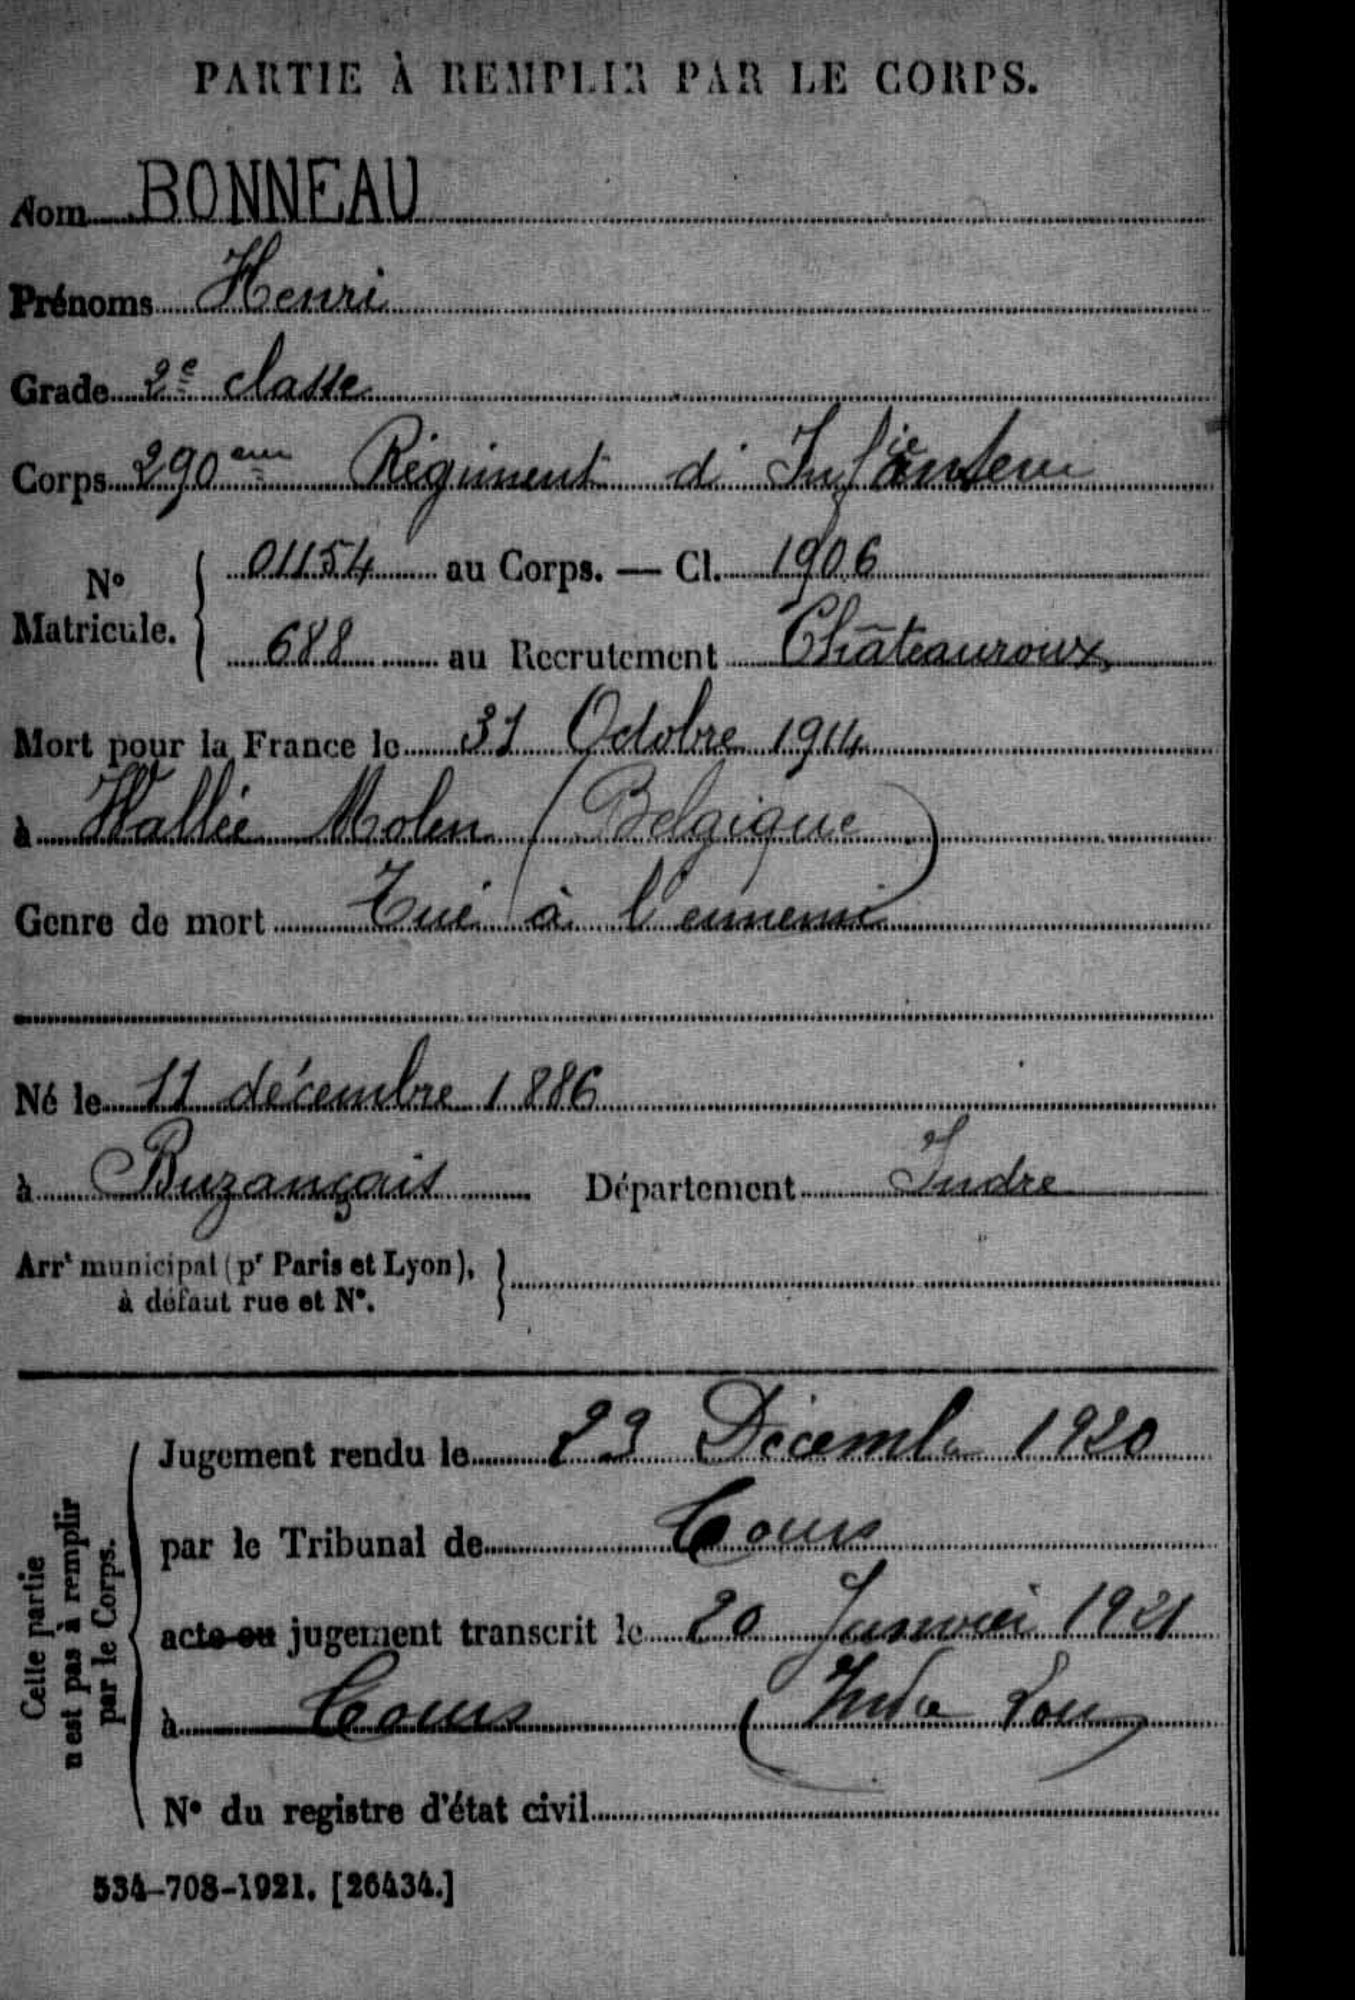 PARTIE À REMPLIR PAR LE CORPS.
Nom BONNEAU
Prénoms Henri
Grade 2e classe
Corps 290eme Régiment d'Infanterie
N° Matricule. 01154 au Corps. — Cl. 1906
688 au Recrutement Châteauroux
Mort pour la France le 31 Octobre 1914
à Wallée Molen (Belgique)
Genre de mort Tué à l'ennemi
Né le 11 décembre 1886
à Buzançais Département Indre
Arrt municipal (pr Paris et Lyon),
à défaut rue et N°.
Cette partie
n'est pas à remplir
par le Corps.
Jugement rendu le 23 Décembre 1920
par le Tribunal de Tours
acte ou jugement transcrit le 20 Janvier 1921
à Tours (Indre Loire)
N° du registre d'état civil
534-708-1921. [26434.]